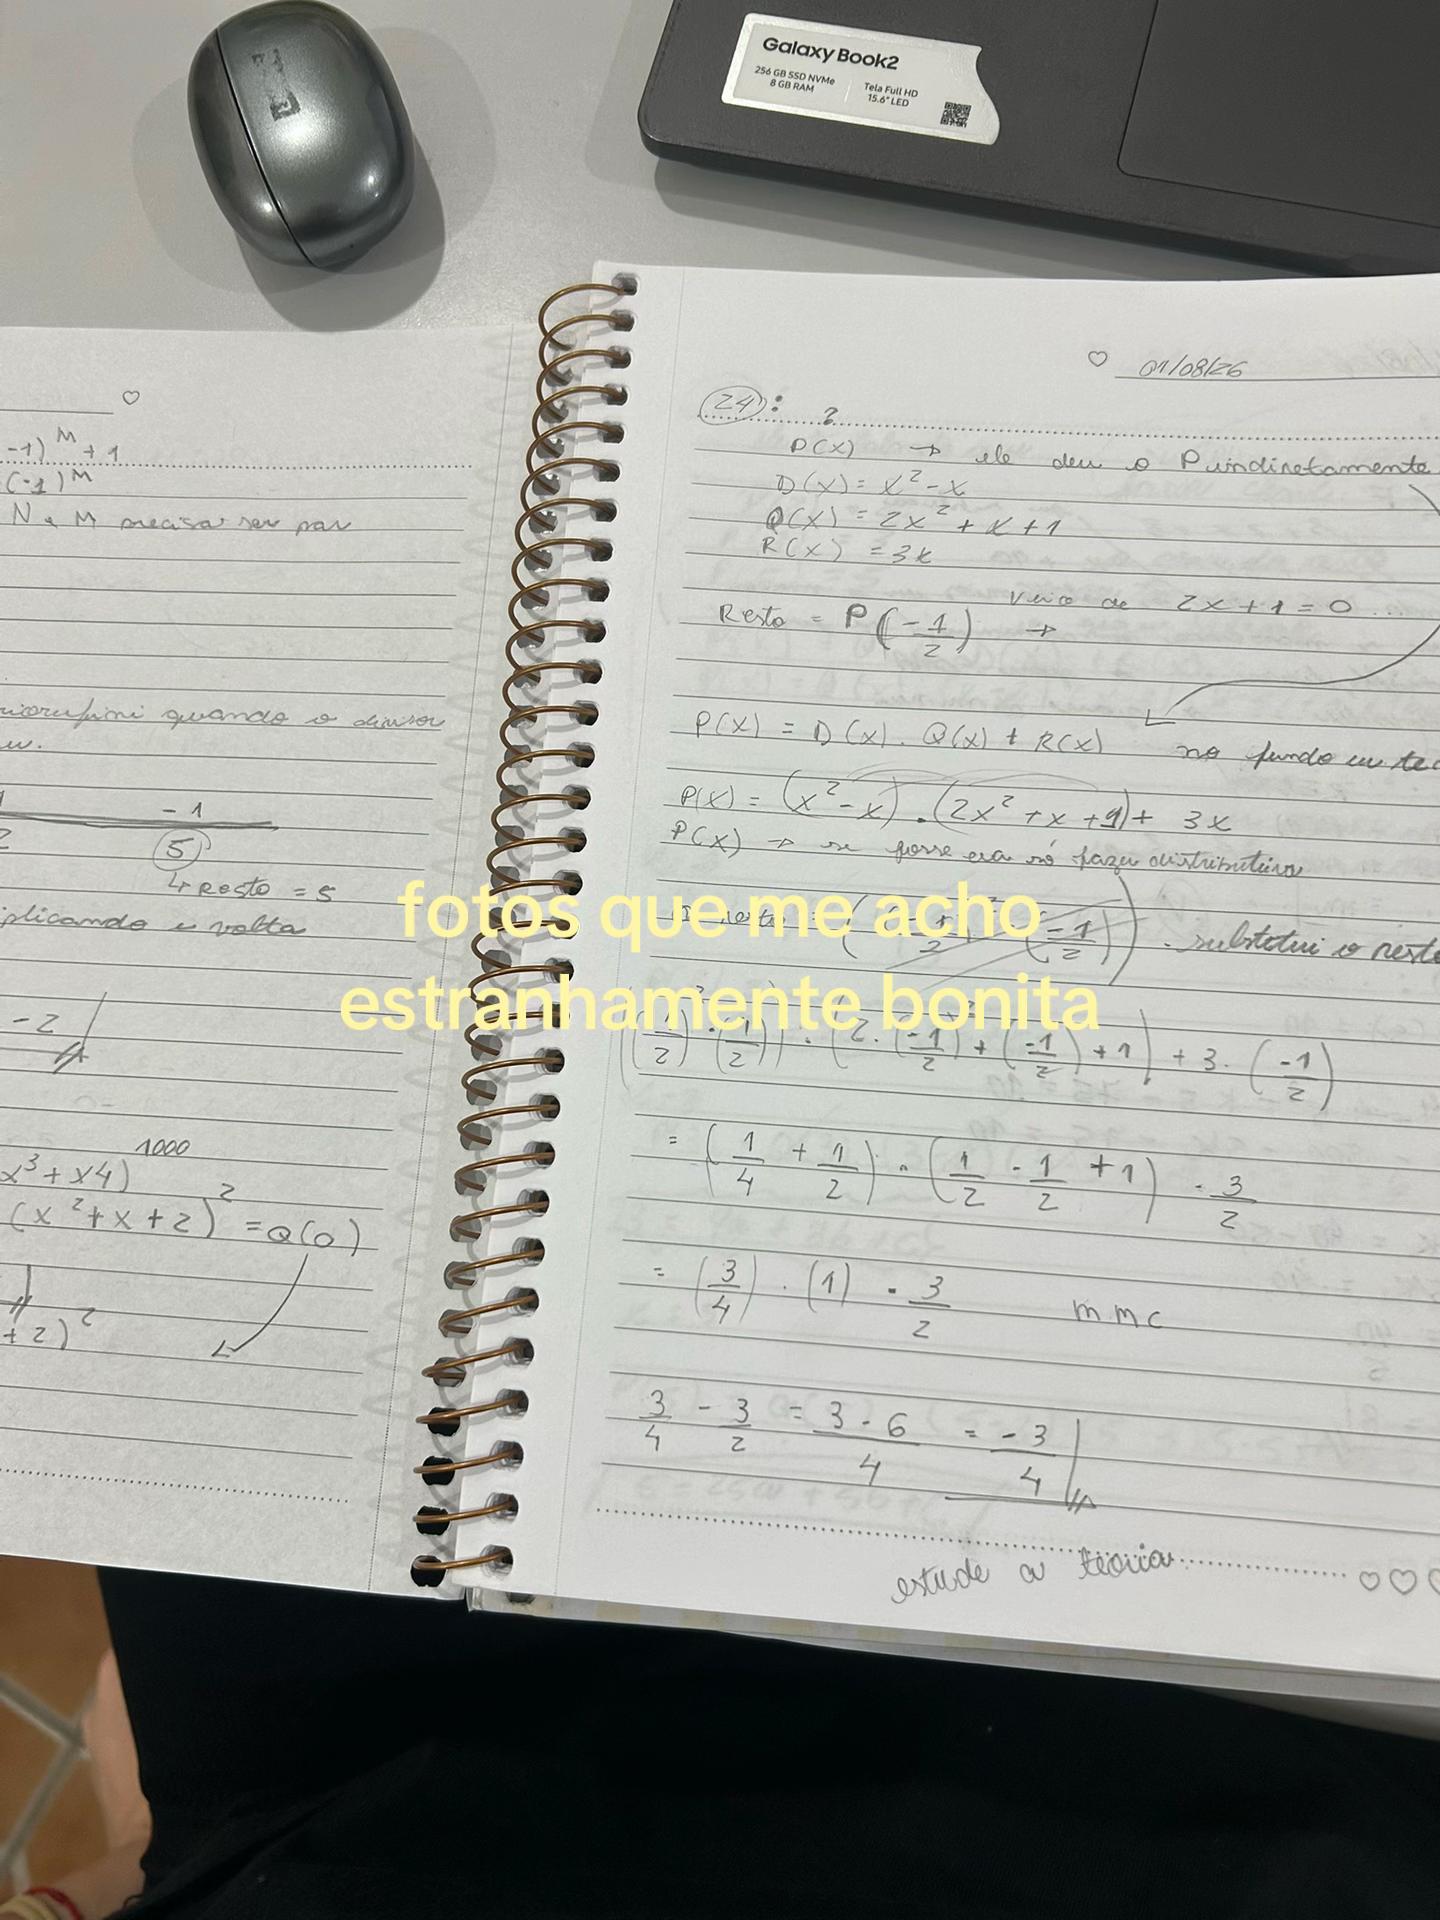 Galaxy Book2
256 GB SSD NVMe
8 GB RAM
Tela Full HD
15.6" LED
-1)^M + 1
(-1)^M
N e M precisa ser par
quando o divisor
-1
5
↳ Resto = 5
plicando e volta
-2
x³ + x4)^1000
(x² + x + 2)² = Q(0)
+ 2)²
01/08/26
24:
?
P(x) → ele deu o P indiretamente
D(x) = x² - x
Q(x) = 2x² + x + 1
R(x) = 3x
Resto = P(-1/2) → veio de 2x + 1 = 0 ...
P(x) = D(x) . Q(x) + R(x) no fundo eu
P(x) = (x² - x) . (2x² + x + 1) + 3x
P(x) → se fosse era só fazer distributiva
fotos que me acho
estranhamente bonita
substitui o resto
(2 . (-1/2)² + (-1/2) + 1) + 3 . (-1/2)
= (1/4 + 1/2) . (1/2 - 1/2 + 1) - 3/2
= (3/4) . (1) - 3/2 mmc
3/4 - 3/2 = 3 - 6/4 = -3/4
estude a teoria